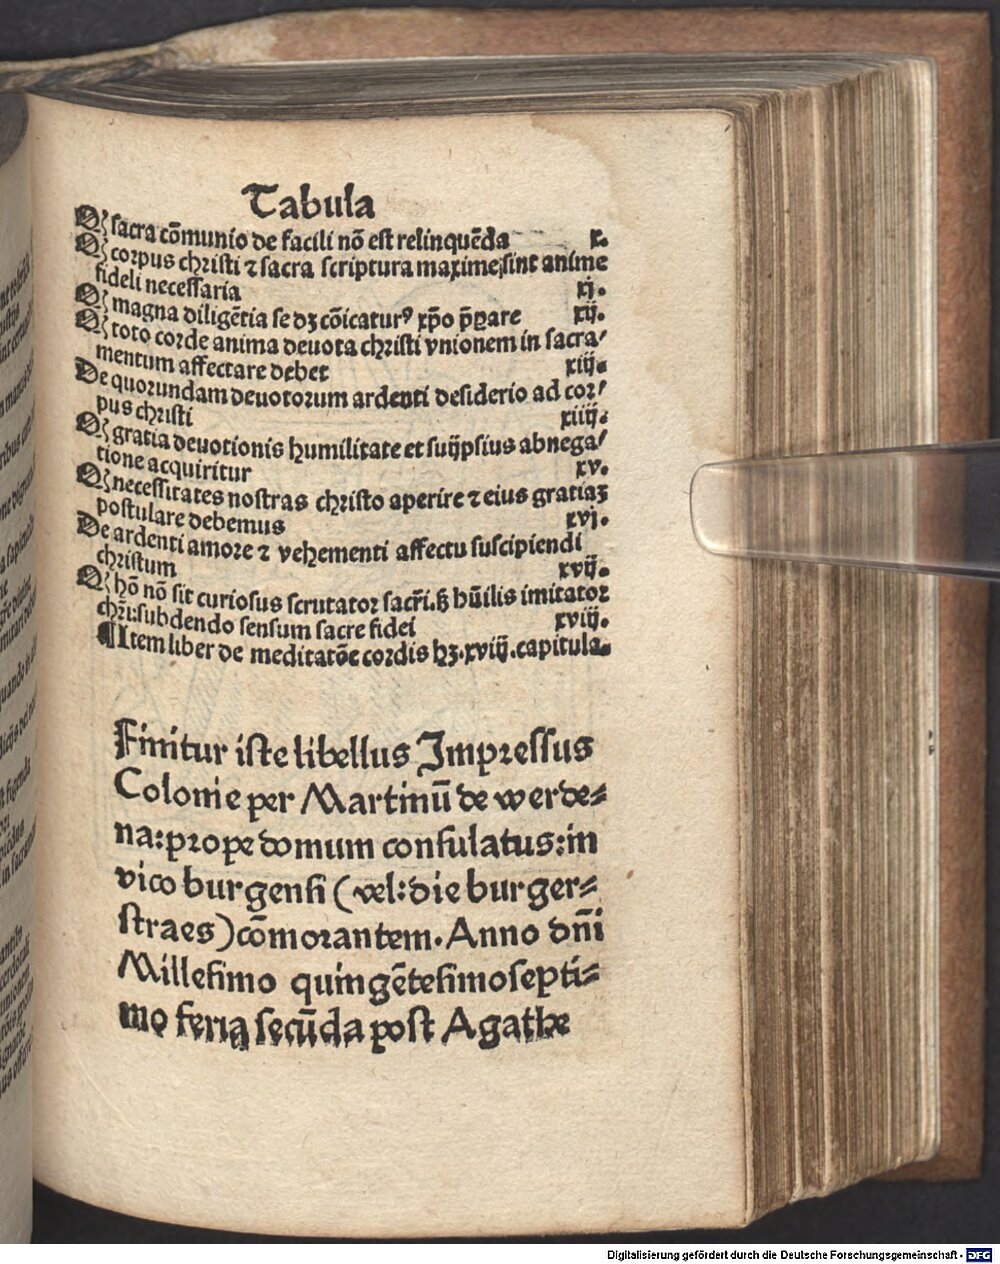 Tabula
Qꝫ sacra cōmunio de facili nō est relinquēda x.
Qꝫ corpus christi ⁊ sacra scriptura maxime sint anime
fideli necessaria xi.
Qꝫ magna diligētia se dꝫ cōicaturꝰ xp̄o p̄parare xij.
Qꝫ toto corde anima deuota christi vnionem in sacra/
mentum affectare debet xiij.
De quorundam deuotorum ardenti desiderio ad cor/
pus christi xiiij.
Qꝫ gratia deuotionis humilitate et suijpsius abnega/
tione acquiritur xv.
Qꝫ necessitates nostras christo aperire ⁊ eius gratiaꝫ
postulare debemus xvj.
De ardenti amore ⁊ vehementi affectu suscipiendi
christum xvij.
Qꝫ hō nō sit curiosus scrutator sacr̄i. sꝫ hūilis imitator
chr̄i: subdendo sensum sacre fidei xviij.
¶ Item liber de meditatōe cordis hꝫ. xviij. capitula.
Finitur iste libellus Impressus
Colonie per Martinū de werde⸗
na: prope domum consulatus: in
vico burgensi (vel: die burger⸗
straes) cōmorantem. Anno dn̄i
Millesimo quingētesimosepti⸗
mo feria secūda post Agathe
Digitalisierung gefördert durch die Deutsche Forschungsgemeinschaft - DFG